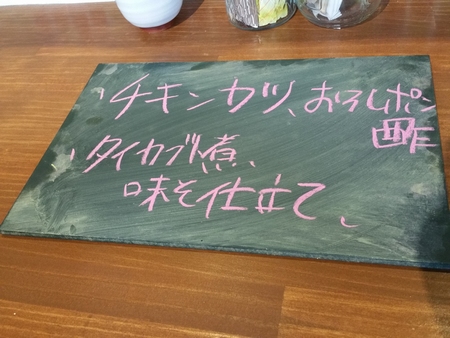 、チキンカツ、おろしポン
酢
、タイカブト煮、
味そ仕立て、